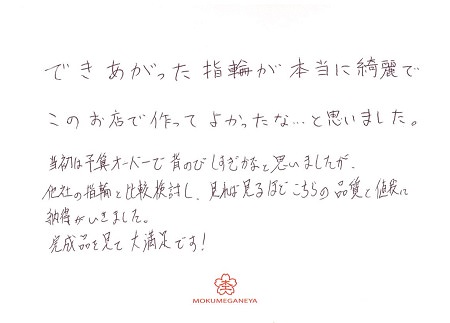 できあがった指輪が本当に綺麗で
このお店で作ってよかったな…と思いました。
当初は予算オーバーで背のびしすぎかなと思いましたが、
他社の指輪と比較検討し、見れば見るほどこちらの品質と値段に
納得がいきました。
完成品を見て大満足です!
MOKUMEGANEYA